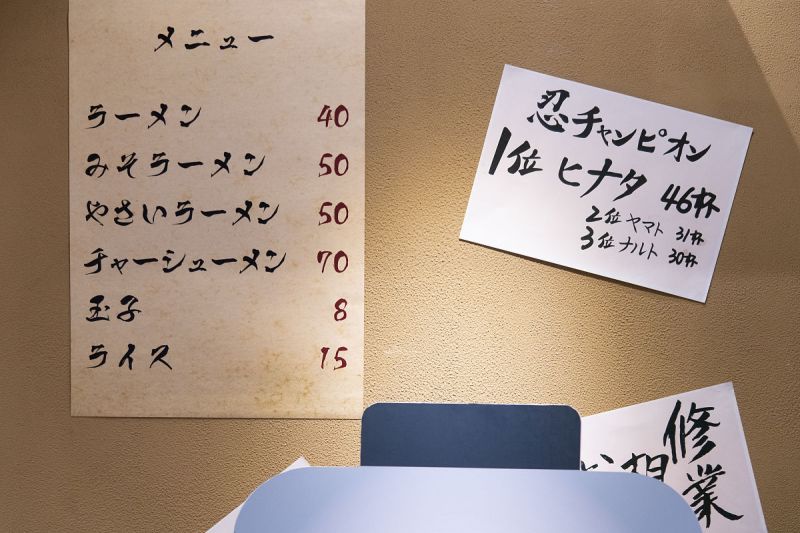 メニュー
ラーメン 40
みそラーメン 50
やさいラーメン 50
チャーシューメン 70
玉子 8
ライス 15
忍チャンピオン
1位 ヒナタ 46杯
2位 ヤマト 31杯
3位 ナルト 30杯
修業